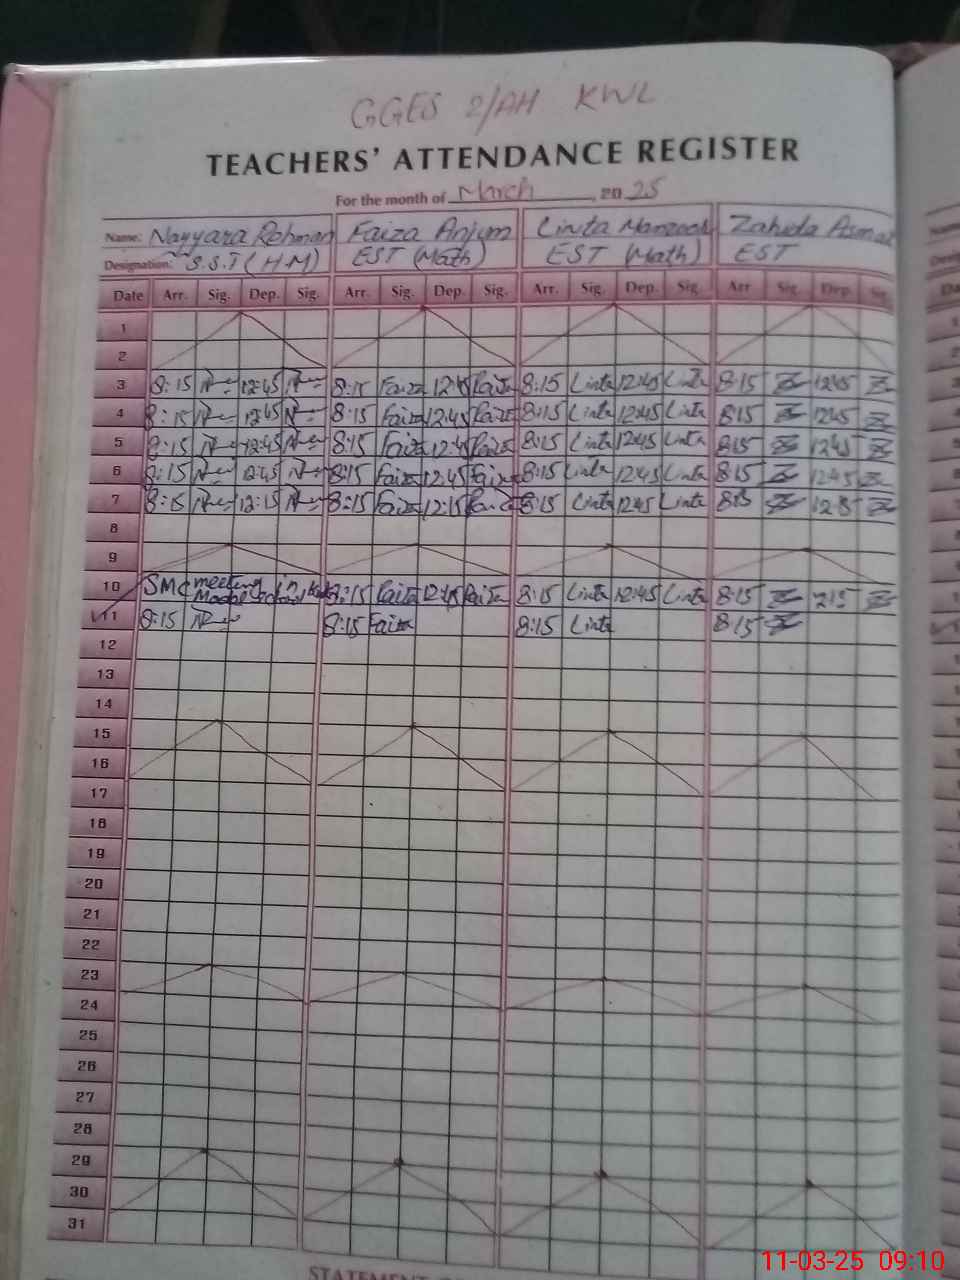 GGES 2/AH KWL
TEACHERS' ATTENDANCE REGISTER
For the month of March, 2025
Name: Nayyara Rehman Faiza Anjum Linta Manzoor Zahida Asmat
Designation: S.S.T (H.M) EST (Math) EST (Math) EST
Date Arr. Sig. Dep. Sig. Arr. Sig. Dep. Sig. Arr. Sig. Dep. Sig. Arr Sig. Dep. Sig.
1
2
3 8:15 12:45 8:15 Faiza 12:45 Faiza 8:15 Linta 12:45 Linta 8:15 12:45
4 8:15 12:45 8:15 Faiza 12:45 Faiza 8:15 Linta 12:45 Linta 8:15 12:45
5 8:15 12:45 8:15 Faiza 12:45 Faiza 8:15 Linta 12:45 Linta 8:15 12:45
6 8:15 12:45 8:15 Faiza 12:45 Faiza 8:15 Linta 12:45 Linta 8:15 12:45
7 8:15 12:15 8:15 Faiza 12:15 Faiza 8:15 Linta 12:45 Linta 8:15
8
9
10 SMC meeting in Model School 8:15 Faiza Faiza 8:15 Linta 12:45 Linta 8:15
11 8:15 8:15 Faiza 8:15 Linta 8:15
12
13
14
15
16
17
18
19
20
21
22
23
24
25
26
27
28
29
30
31
STATEMENT
11-03-25 09:10